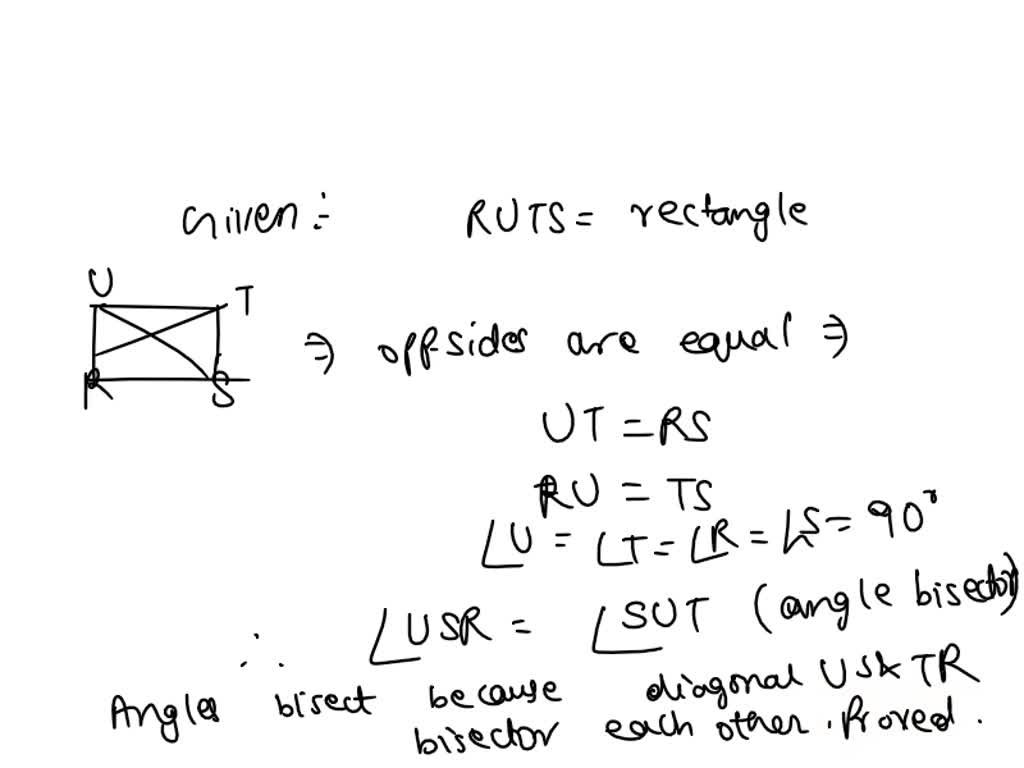 Given :- RUTS = rectangle
U T
⇒ opp. sides are equal ⇒
R S
UT = RS
RU = TS
∠U = ∠T = ∠R = ∠S = 90°
∴ ∠USR = ∠SUT (angle bisector)
Angles bisect because diagonal US & TR
bisector each other. Proved.